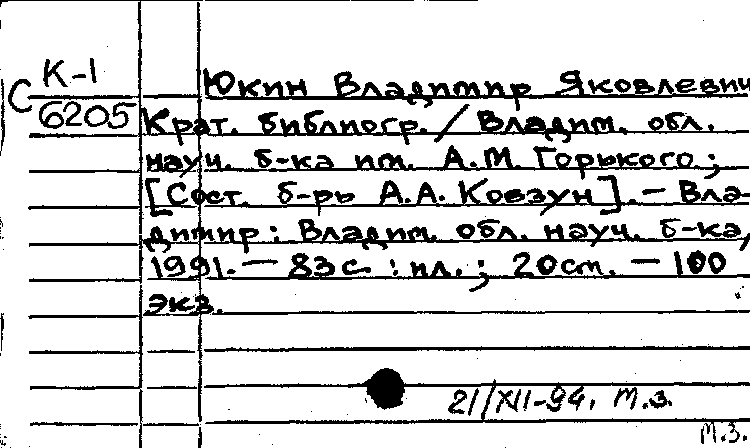 К-1
С 6205
Юкин Владимир Яковлевич
Крат. библиогр. / Владим. обл.
науч. б-ка им. А.М. Горького;
[Сост. б-рь А.А. Ковзун]. - Вла-
димир: Владим. обл. науч. б-ка,
1991. - 83 с. : ил. ; 20 см. - 100
экз.
21/XII-94. М.З.
М.З.